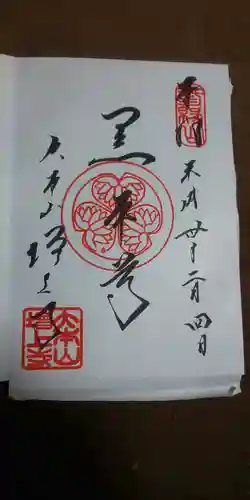 奉拝
平成廿十二月四日
黒本尊
大本山
増上寺
大本山
増上寺